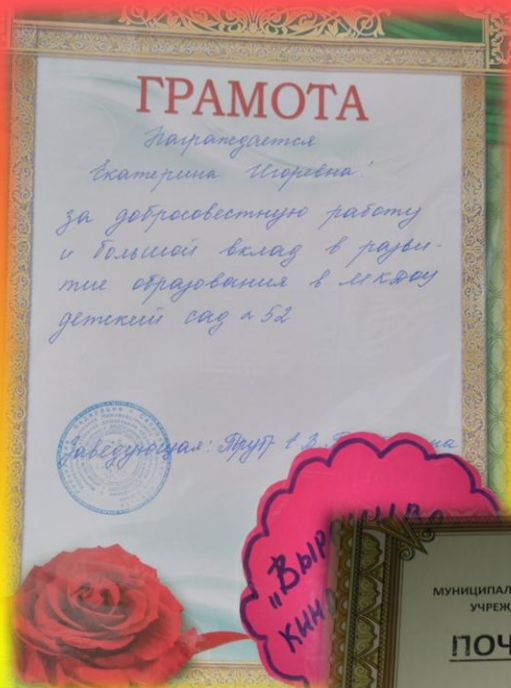 ГРАМОТА
Награждается
Екатерина Игоревна!
за добросовестную работу
и большой вклад в разви-
тие образования в МКДОУ
детский сад № 52
Заведующая:
"Выр
кино
МУНИЦИПАЛ
УЧРЕЖ
ПОЧ